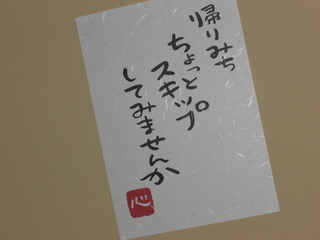 帰りみち
ちょっと
スキップ
してみませんか
心